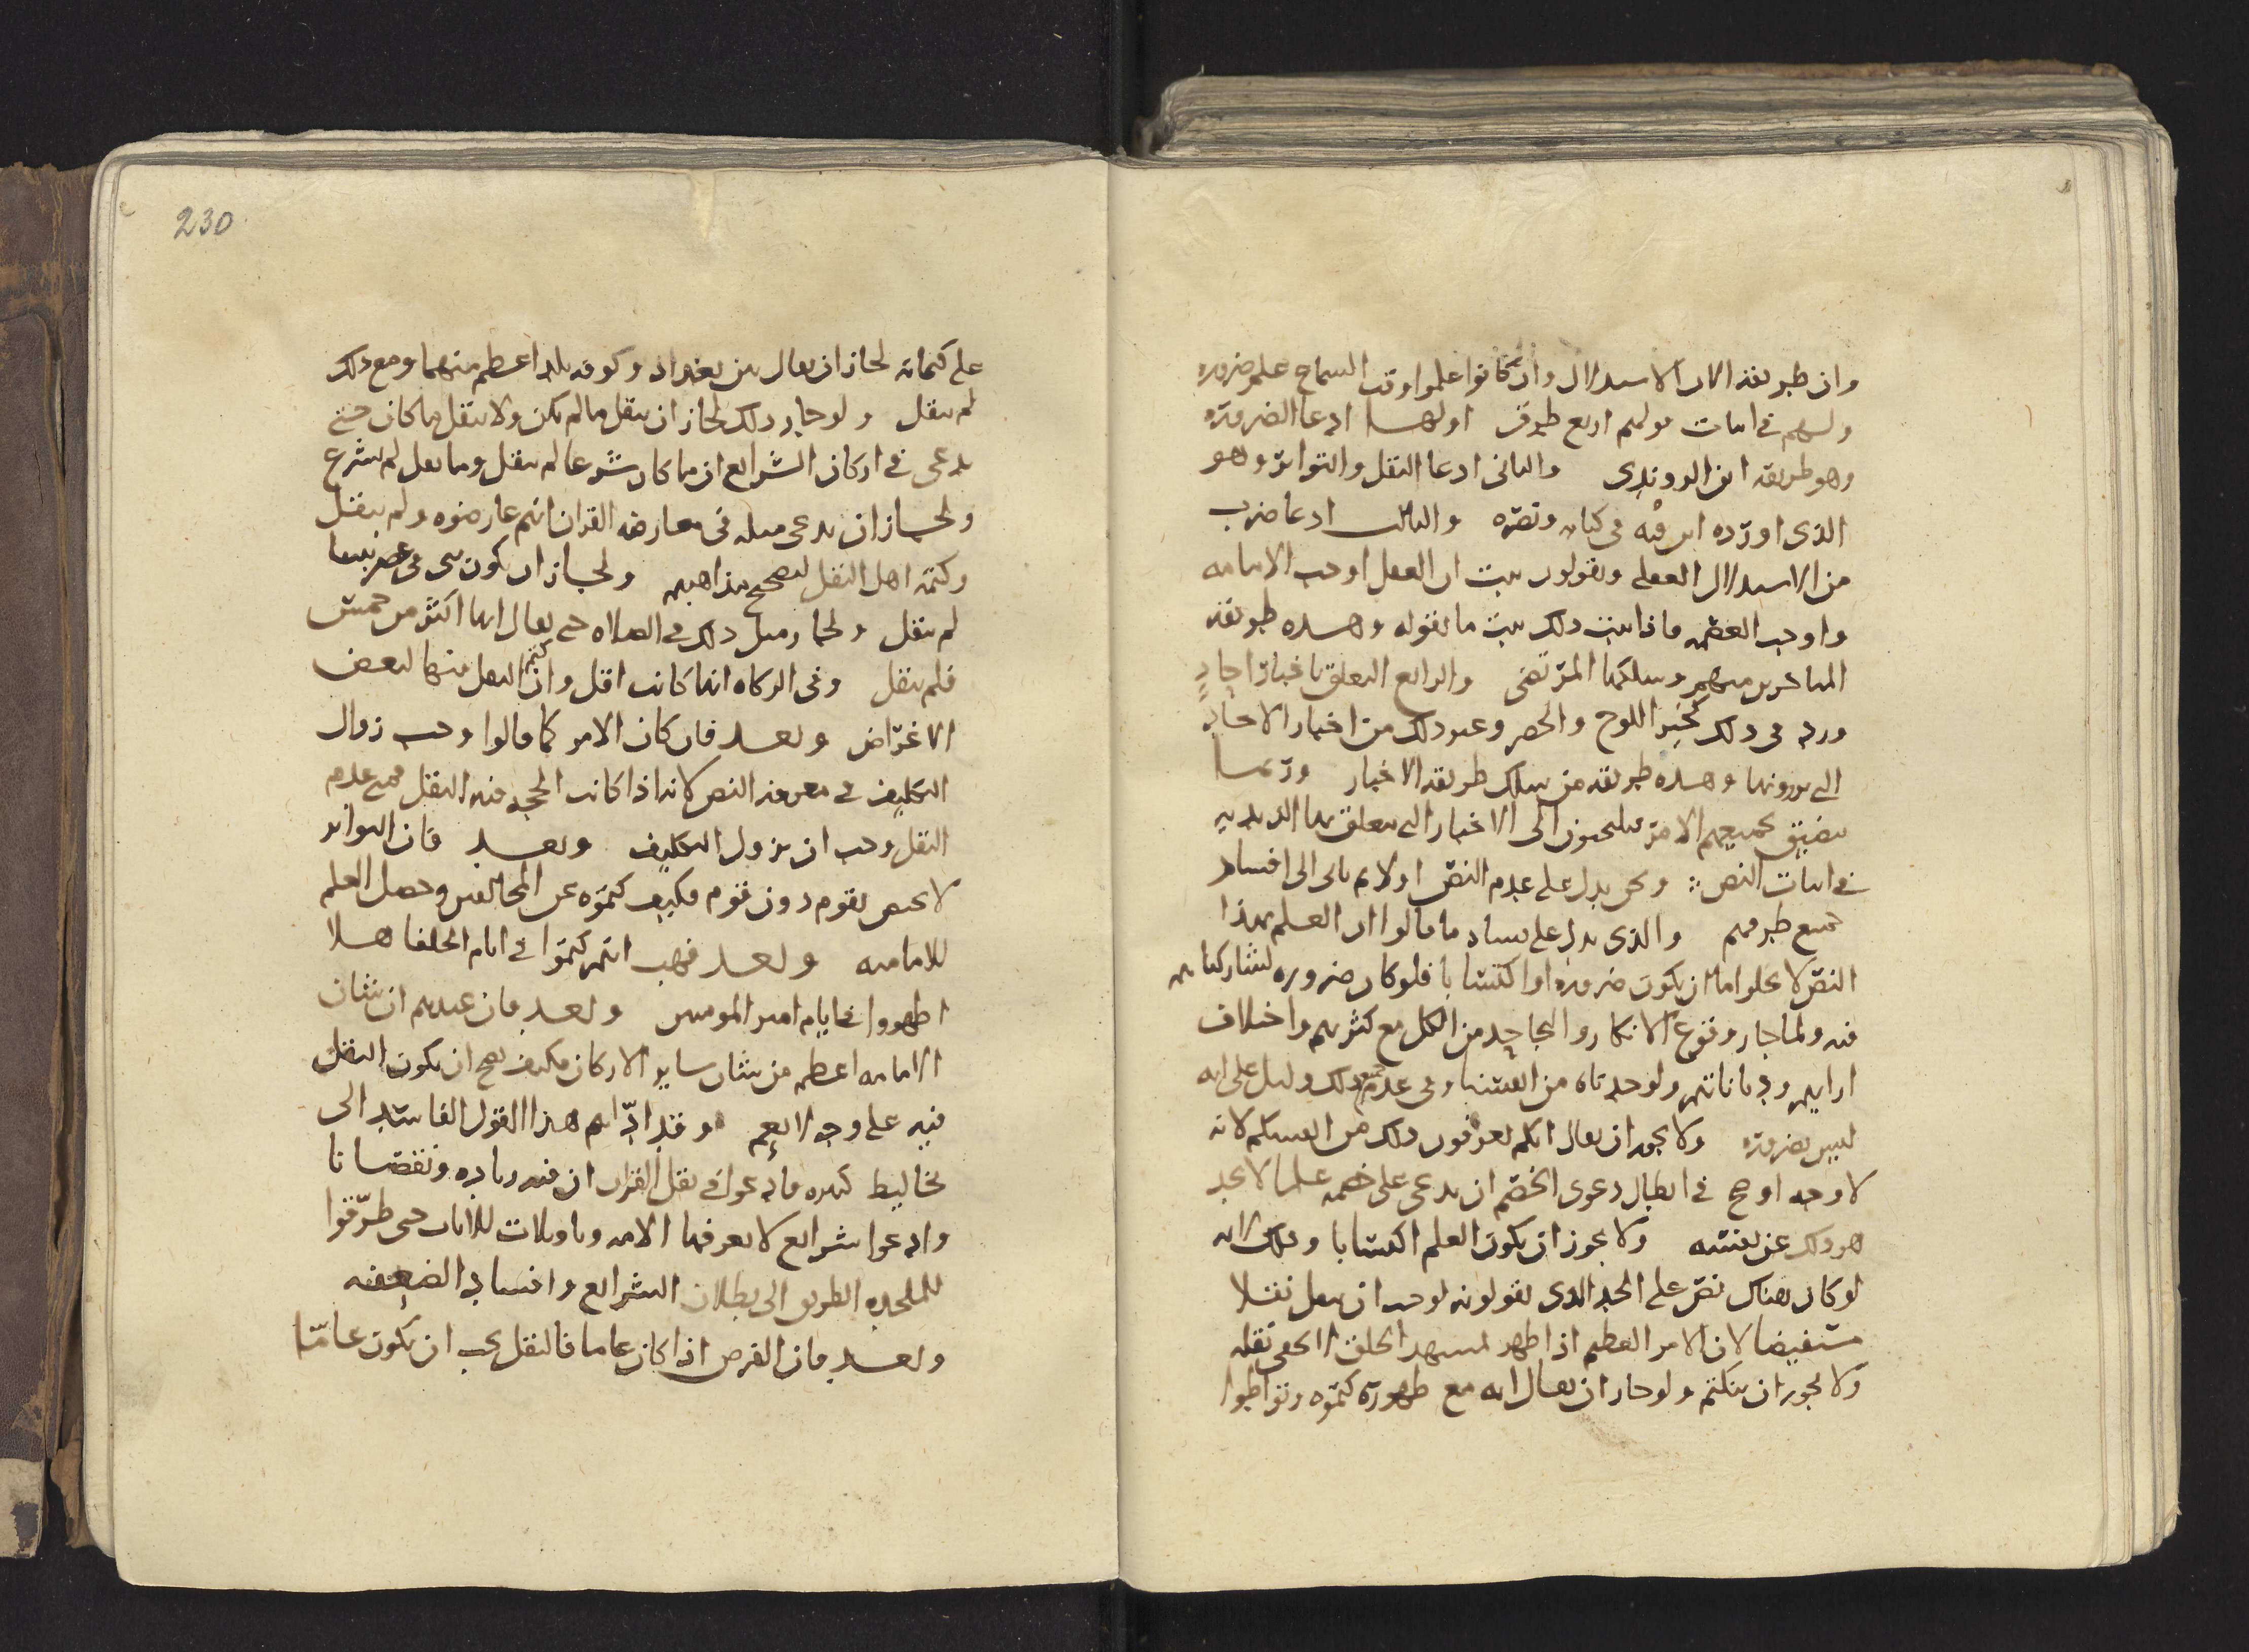 وان طريقه الان الاستدلال وان كانوا علموا وقت السماع علم ضروره
ولهم في اثبات قولهم اربع طرق اولها ادعا الضروره
وهو طريقه ابن الروندي والثاني ادعا النقل والتواتر وهو
الذي اورده ابن قبه في كتابه ونصره والثالث ادعا ضرب
من الاستدلال العقلي ويقولون ثبت ان العقل اوجب الامامه
واوجب العصمه فاذا ثبت ذلك ثبت ما نقوله وهذه طريقه
المتاخرين منهم وسلكها المرتضى والرابع التعلق باخبار احاد
ورد في ذلك كخبر اللوح والخضر وغير ذلك من اخبار الاحاد
التي يروونها وهذه طريقه من يسلك طريقه الاخبار وربما
يضيق بجميعهم الامر فيلتجئون الى الاخبار التي يتعلق بها الزيديه
في اثبات النص ونحن ندل على عدم النص اولا ثم ناتي الى افساد
جميع طرقهم والذي يدل على فساد ما قالوا ان العلم بهذا
النص لا يخلو اما ان يكون ضروره او اكتسابا فلو كان ضروره لشاركناهم
فيه ولما جاز وقوع الانكار والتجاحد من الكل مع كثرتهم واختلاف
ارايهم ودياناتهم ولوجدناه من انفسنا وفي عدم جميع ذلك دليل على انه
ليس بضروره ولا يجوز ان يقال انكم تعرفون ذلك من انفسكم لانه
لا وجه اوضح في ابطال دعوى الخصم ان يدعي على خصمه علما لا يجد
هو ذلك عن نفسه ولا يجوز ان يكون العلم اكتسابا وذلك لانه
لو كان هناك نص على الحد الذي يقولونه لوجب ان ينقل نقلا
مستفيضا لان الامر العظيم اذا ظهر لمشهد الخلق لا يخفى نقله
ولا يجوز ان ينكتم ولو جاز ان يقال انه مع ظهوره كتموه وتواطوا
230
على كتمانه لجاز ان يقال بين بغداد وكوفه بلد اعظم منهما ومع ذلك
لم ينقل ولو جاز ذلك لجاز ان ينقل ما لم يكن ولا ينقل ما كان حتى
يدعى في اركان الشرايع ان ما كان شرعا لم ينقل وما نقل لم يشرع
ولجاز ان يدعي مثله في معارضه القران انهم عارضوه ولم ينقل
وكتمه اهل النقل لتصحيح مذاهبهم ولجاز ان يكون نبي في عصر نبينا
لم ينقل ولجاز مثل ذلك في الصلاه حتى يقال انها اكثر من خمس
فلم ينقل وفي الزكاه انها كانت اقل وان كتم النقل منها لبعض
الاغراض وبعد فان كان الامر كما قالوا وجب زوال
التكليف في معرفه النص لانه اذا كانت الحجه فيه النقل فمع عدم
النقل وجب ان يزول التكليف وبعد فان التواتر
لا يختص بقوم دون قوم فكيف كتموه عن المخالفين وحصل العلم
للاماميه وبعد فهب انهم كتموا في ايام الخلفا هلا
اظهروا في ايام امير المومنين وبعد فان عندهم ان شان
الامامه اعظم من شان ساير الاركان فكيف يصح ان يكون النقل
فيه على وجه لا يعم وقد اداهم هذا القول الفاسد الى
تخاليط كثيره فادعوا في نقل القران ان فيه زياده ونقصانا
وادعوا شرايع لا يعرفها الامه وتاويلات للايات حتى طرقوا
للملحده الطريق الى بطلان الشرايع وافساد الضعيفه
وبعد فان الفرض اذا كان عاما فالنقل يجب ان يكون عاما